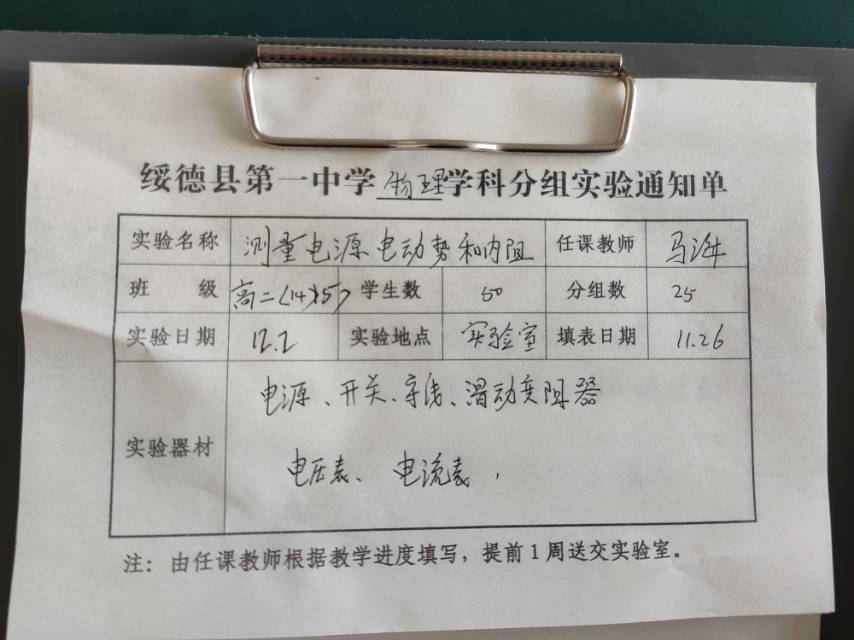 绥德县第一中学物理学科分组实验通知单
实验名称 测量电源电动势和内阻 任课教师 马
班 级 高二(14)(15) 学生数 50 分组数 25
实验日期 12.2 实验地点 实验室 填表日期 11.26
实验器材 电源、开关、导线、滑动变阻器
电压表、电流表,
注：由任课教师根据教学进度填写，提前1周送交实验室。